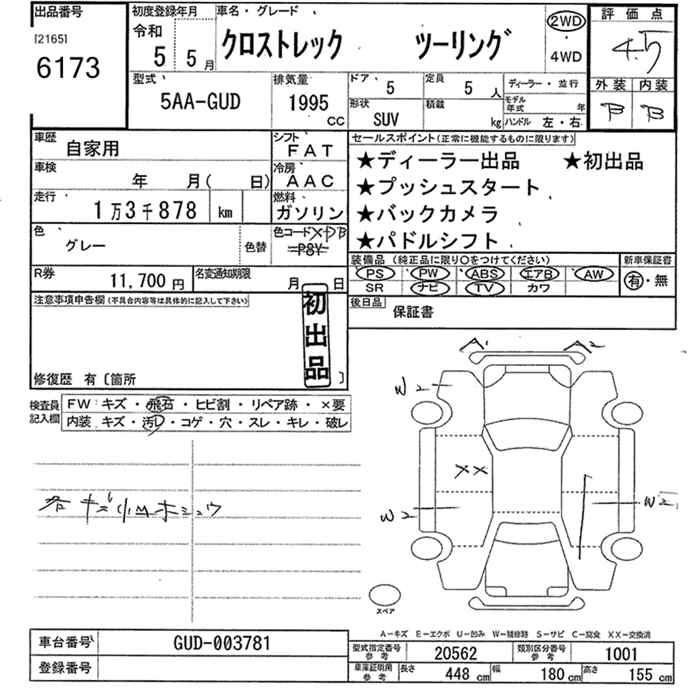 出品番号 初度登録年月 車名・グレード 評価点
[2165] 令和
6173 5 5月 クロストレック ツーリング 2WD ・ 4WD 4.5
型式 排気量 ドア 5 定員 5 人 ディーラー・並行 外装 内装
5AA-GUD 1995 cc 形状 SUV 積載 kg モデル年式 年 ハンドル 左・右 B B
車歴 自家用 シフト FAT セールスポイント(正常に機能するものに限ります)
車検 年 月( 日) 冷房 AAC ★ディーラー出品 ★初出品
走行 1万3千878 km 燃料 ガソリン ★プッシュスタート
★バックカメラ
色 グレー 色替 色コード P8Y ★パドルシフト
装備品(純正品に限り○をつけてください) 新車保証書
R券 11,700円 名変通知期限 月 日 PS PW ABS エアB AW 有・無
SR ナビ TV カワ
注意事項申告欄(不具合内容等は具体的に記入して下さい) 初出品 後日品 保証書
修復歴 有〔箇所 〕
A1 A2
W2
検査員記入欄 FW:キズ・飛石・ヒビ割・リペア跡・×要
内装 キズ・汚レ・コゲ・穴・スレ・キレ・破レ
XX
各キズ小
W2 W2
スペア
A-キズ E-エクボ U-凹み W-補修跡 S-サビ C-腐食 XX-交換済
車台番号 GUD-003781 型式指定番号参考 20562 類別区分番号参考 1001
登録番号 車庫証明用参考 長さ 448 cm 幅 180 cm 高さ 155 cm